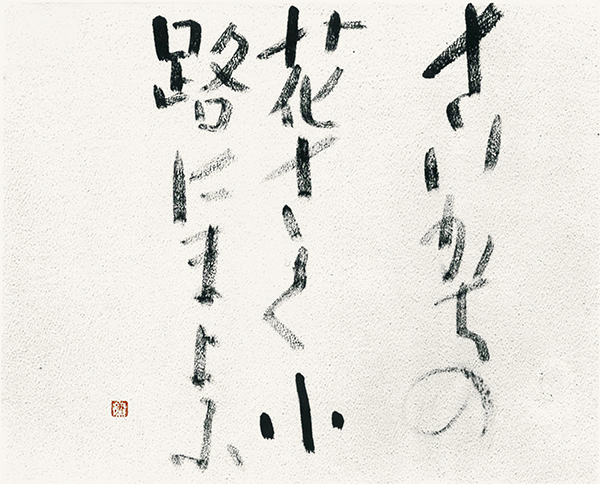 さいかちの
花さく小
路にまよふ